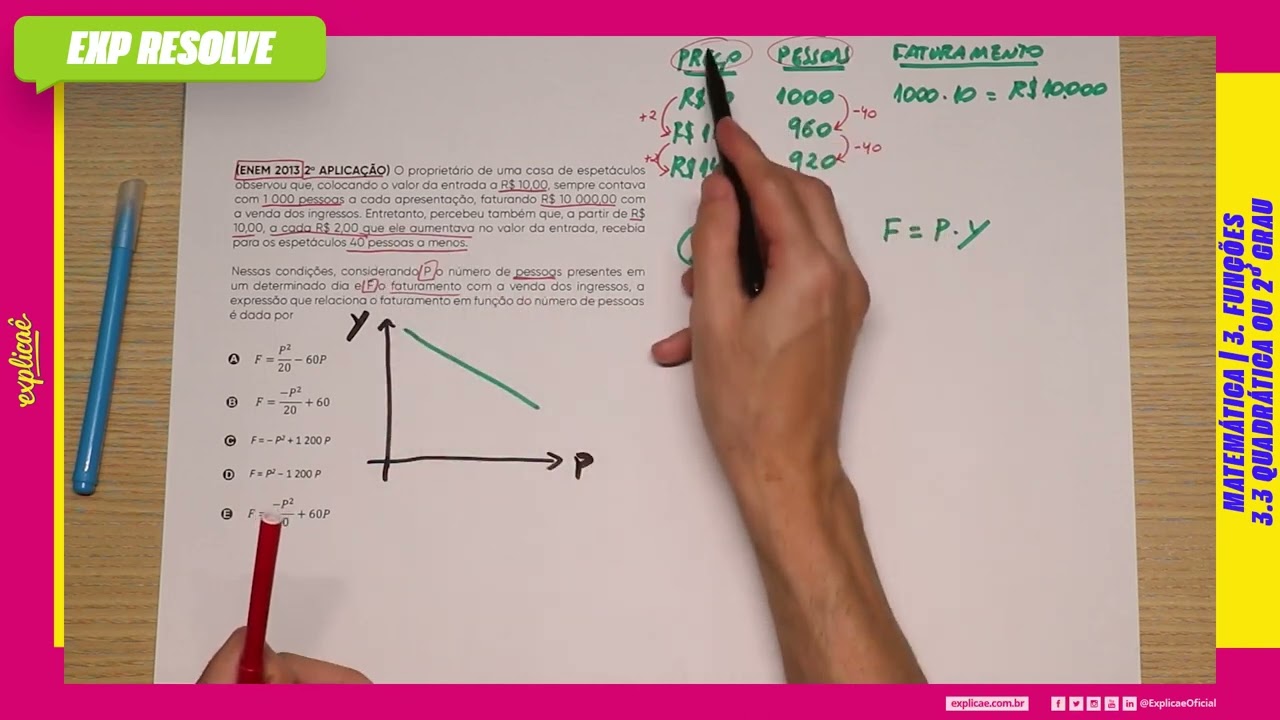 EXP RESOLVE
PREÇO PESSOAS FATURAMENTO
1000 1000.10 = R$10.000
+2 -40
R$ 960
+2 -40
R$ 920
F = P.Y
(ENEM 2013 2ª APLICAÇÃO) O proprietário de uma casa de espetáculos
observou que, colocando o valor da entrada a R$ 10,00, sempre contava
com 1 000 pessoas a cada apresentação, faturando R$ 10 000,00 com
a venda dos ingressos. Entretanto, percebeu também que, a partir de R$
10,00, a cada R$ 2,00 que ele aumentava no valor da entrada, recebia
para os espetáculos 40 pessoas a menos.
Nessas condições, considerando P o número de pessoas presentes em
um determinado dia e F o faturamento com a venda dos ingressos, a
expressão que relaciona o faturamento em função do número de pessoas
é dada por
A F = P²/20 − 60P
B F = −P²/20 + 60
C F = − P² + 1 200 P
D F = P² − 1 200 P
E F = −P² + 60P
Y
P
explicaê
MATEMÁTICA | 3. FUNÇÕES
3.3 QUADRÁTICA OU 2º GRAU
explicae.com.br
@ExplicaeOficial